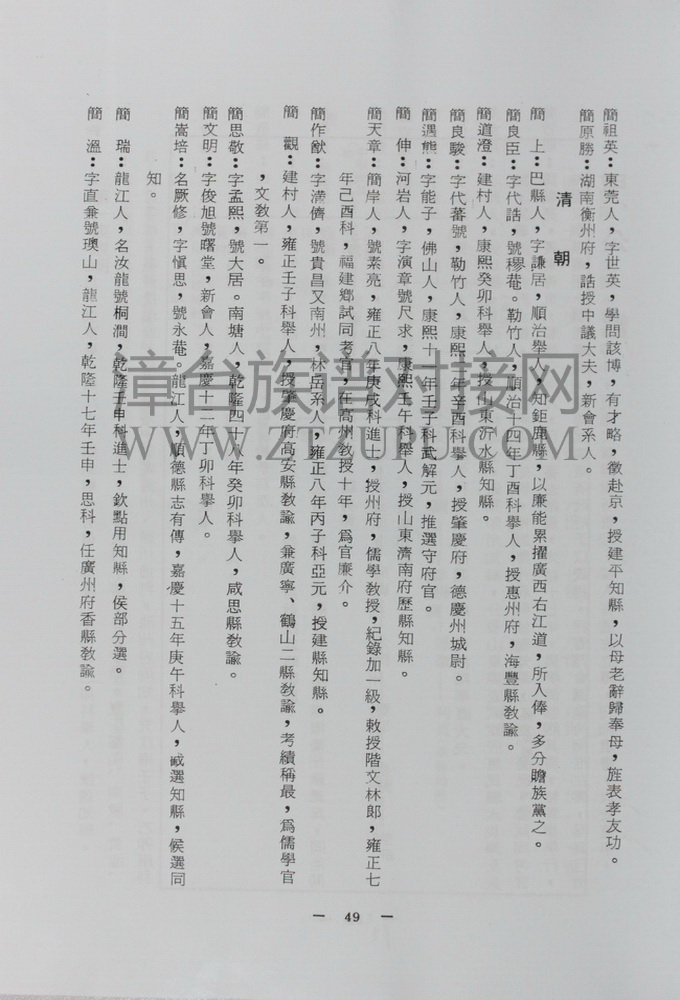 簡祖英：東莞人，字世英，學問該博，有才略，徵赴京，授建平知縣，以母老辭歸奉母，旌表孝友功。
簡原勝：湖南衡州府，誥授中議大夫，新會系人。
清　朝
簡　上：巴縣人，字謙居，順治舉人，知鉅鹿縣，以廉能累擢廣西右江道，所入俸，多分贍族黨之。
簡良臣：字代誥，號穆菴。勒竹人，順治十四年丁酉科學人，授惠州府，海豐縣教諭。
簡道澄：建村人，康熙癸卯科舉人，授山東沂水縣知縣。
簡良駿：字代蕃號，勒竹人，康熙　年辛酉科學人，授肇慶府，德慶州城尉。
簡遇熊：字能子，佛山人，康熙十一年壬子科武解元，推選守府官。
簡　伸：河岩人，字演章號尺求，康熙壬午科舉人，授山東濟南府歷縣知縣。
簡天章：簡岸人，號素亮，雍正八年庚戌科進士，授州府，儒學教授，紀錄加一級，敕授階文林郎，雍正七
年己酉科，福建鄉試同考官，在高州教授十年，爲官廉介。
簡作猷：字漭儕，號貴昌又南州，林岳系人，雍正八年丙子科亞元，授建縣知縣。
簡　觀：建村人，雍正壬子科舉人，授肇慶府高安縣教諭，兼廣寧、鶴山二縣教諭，考績稱最，爲儒學官
，文教第一。
簡思敬：字孟熙，號大居。南塘人，乾隆四十八年癸卯科學人，咸思縣教諭。
簡文明：字俊旭號曙堂，新會人，嘉慶十二年丁卯科學人。
簡嵩培：名厥修，字愼思，號永菴。龍江人，順德縣志有傳，嘉慶十五年庚午科舉人，截選知縣，候選同
知。
簡　瑞：龍江人，名汝龍號桐澗，乾隆壬申科進士，欽點用知縣，侯部分選。
簡　溫：字直兼號璞山，龍江人，乾隆十七年壬申，思科，任廣州府香縣教諭。
— 49 —
漳台族谱对接网
WWW.ZTZUPU.COM